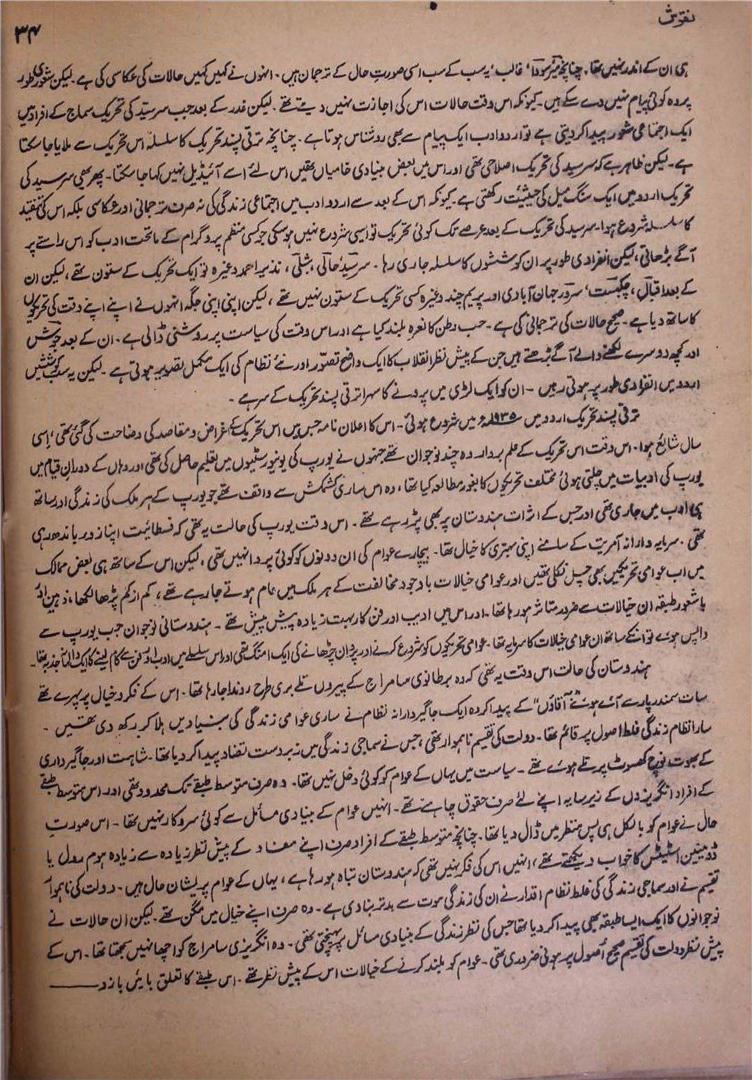 نقوش
۳۴
ہی ان کے اندر نہیں تھا۔ چنانچہ میر، سودا، غالب، یہ سب کے سب اسی صورتِ حال کے ترجمان ہیں۔ انہوں نے کہیں کہیں حالات کی عکاسی کی ہے۔ لیکن شعوری طور
پر وہ کوئی پیام نہیں دے سکے ہیں۔ کیونکہ اس وقت حالات اس کی اجازت نہیں دیتے تھے۔ لیکن غدر کے بعد جب سرسید کی تحریک سماج کے افراد میں
ایک اجتماعی شعور پیدا کر دیتی ہے تو اردو ادب ایک پیام سے بھی روشناس ہوتا ہے۔ چنانچہ ترقی پسند تحریک کا سلسلہ اس تحریک سے ملایا جا سکتا
ہے۔ لیکن ظاہر ہے کہ سرسید کی تحریک اصلاحی تھی اور اس میں بعض بنیادی خامیاں تھیں اس لئے اسے آئیڈیل نہیں کہا جا سکتا۔ پھر بھی سرسید کی
تحریک اردو میں ایک سنگ میل کی حیثیت رکھتی ہے۔ کیونکہ اس کے بعد سے اردو ادب میں اجتماعی زندگی کی نہ صرف ترجمانی اور عکاسی بلکہ اس کی تنقید
کا سلسلہ شروع ہوا۔ سرسید کی تحریک کے بعد عرصے تک کوئی تحریک تو ایسی شروع نہیں ہو سکی جو کسی منظم پروگرام کے ماتحت ادب کو اس راستے پر
آگے بڑھاتی، لیکن انفرادی طور پر ان کوششوں کا سلسلہ جاری رہا۔ سرسید، حالی، شبلی، نذیر احمد وغیرہ تو ایک تحریک کے ستون تھے، لیکن ان
کے بعد اقبال، چکبست، سرور جہان آبادی اور پریم چند وغیرہ کسی تحریک کے ستون نہیں تھے، لیکن اپنی اپنی جگہ انہوں نے اپنے اپنے وقت کی تحریکوں
کا ساتھ دیا ہے۔ صحیح حالات کی ترجمانی کی ہے۔ حب وطن کا نعرہ بلند کیا ہے اور اس وقت کی سیاست پر روشنی ڈالی ہے۔ ان کے بعد جوش
اور کچھ دوسرے لکھنے والے آگے بڑھتے ہیں جن کے پیش نظر انقلاب کا ایک واضح تصور اور نئے نظام کی ایک مکمل تصویر ہوتی ہے۔ لیکن یہ سب کوششیں
اردو میں انفرادی طور پر ہوتی رہیں۔ ان کو ایک لڑی میں پرونے کا سہرا ترقی پسند تحریک کے سر ہے۔
ترقی پسند تحریک اردو میں ۱۹۳۵ء میں شروع ہوئی۔ اس کا اعلان نامہ جس میں اس تحریک کے اغراض و مقاصد کی وضاحت کی گئی تھی، اسی
سال شائع ہوا۔ اس وقت اس تحریک کے علم بردار وہ چند نوجوان تھے جنہوں نے یورپ کی یونیورسٹیوں میں تعلیم حاصل کی تھی اور وہاں کے دورانِ قیام میں
یورپ کی ادبیات میں چلتی ہوئی مختلف تحریکوں کا بغور مطالعہ کیا تھا، وہ اس ساری کشمکش سے واقف تھے جو یورپ کے ہر ملک کی زندگی اور ساتھ
ہی ادب میں جاری تھی اور جس کے اثرات ہندوستان پر بھی پڑ رہے تھے۔ اس وقت یورپ کی حالت یہ تھی کہ فسطائیت اپنا زور باندھ رہی
تھی۔ سرمایہ دارانہ آمریت کے سامنے اپنی بہتری کا خیال تھا۔ بیچارے عوام کی ان دونوں کو کوئی پروا نہیں تھی، لیکن اس کے ساتھ ہی بعض ممالک
میں اب عوامی تحریکیں بھی چل نکلی تھیں اور عوامی خیالات باوجود مخالفت کے ہر ملک میں عام ہوتے جا رہے تھے، کم از کم پڑھا لکھا، ذہین اور
باشعور طبقہ ان خیالات سے ضرور متاثر ہو رہا تھا۔ اور اس میں ادیب اور فن کار بہت زیادہ پیش پیش تھے۔ ہندوستانی نوجوان جب یورپ سے
واپس ہوئے تو انکے ساتھ ان عوامی خیالات کا سرمایہ تھا۔ عوامی تحریکوں کو شروع کرنے اور پروان چڑھانے کی ایک امنگ تھی اور اس سلسلے میں ادب اور فن سے کام لینے کا ایک والہانہ جذبہ تھا۔
ہندوستان کی حالت اس وقت یہ تھی کہ وہ برطانوی سامراج کے پیروں تلے بری طرح روندا جا رہا تھا۔ اس کے فکر و خیال پر پہرے تھے
سات سمندر پار سے آئے ہوئے آقاؤں" کے پیدا کردہ ایک جاگیردارانہ نظام نے ساری عوامی زندگی کی بنیادیں ہلا کر رکھ دی تھیں۔
سارا نظام زندگی غلط اصول پر قائم تھا۔ دولت کی تقسیم ناہموار تھی، جس نے سماجی زندگی میں زبردست تضاد پیدا کر دیا تھا۔ شاہت اور جاگیرداری
کے بھوت نوچ کھسوٹ پر تلے ہوئے تھے۔ سیاست میں یہاں کے عوام کو کوئی دخل نہیں تھا۔ وہ صرف متوسط طبقے تک محدود تھی اور اس متوسط طبقے
کے افراد انگریزوں کے زیر سایہ اپنے لئے صرف حقوق چاہتے تھے۔ انہیں عوام کے بنیادی مسائل سے کوئی سروکار نہیں تھا۔ اس صورتِ
حال نے عوام کو بالکل ہی پس منظر میں ڈال دیا تھا۔ چنانچہ متوسط طبقے کے افراد صرف اپنے مفاد کے پیش نظر زیادہ سے زیادہ ہوم رول یا
ڈومینین اسٹیٹس کا خواب دیکھتے تھے، انہیں اس کی فکر نہیں تھی کہ ہندوستان تباہ ہو رہا ہے، یہاں کے عوام پریشان حال ہیں۔ دولت کی ناہموار
تقسیم نے اور سماجی زندگی کی غلط نظام اقدار نے ان کی زندگی موت سے بدتر بنا دی ہے۔ وہ صرف اپنے خیال میں مگن تھے۔ لیکن ان حالات نے
نوجوانوں کا ایک ایسا طبقہ بھی پیدا کر دیا تھا جس کی نظر زندگی کے بنیادی مسائل پر پہنچتی تھی۔ وہ انگریزی سامراج کو اچھا نہیں سمجھتا تھا۔ اس کے
پیش نظر دولت کی تقسیم صحیح اصول پر ہونی ضروری تھی۔ عوام کو بلند کرنے کے خیالات اس کے پیش نظر تھے۔ اس طبقے کا تعلق بائیں بازو